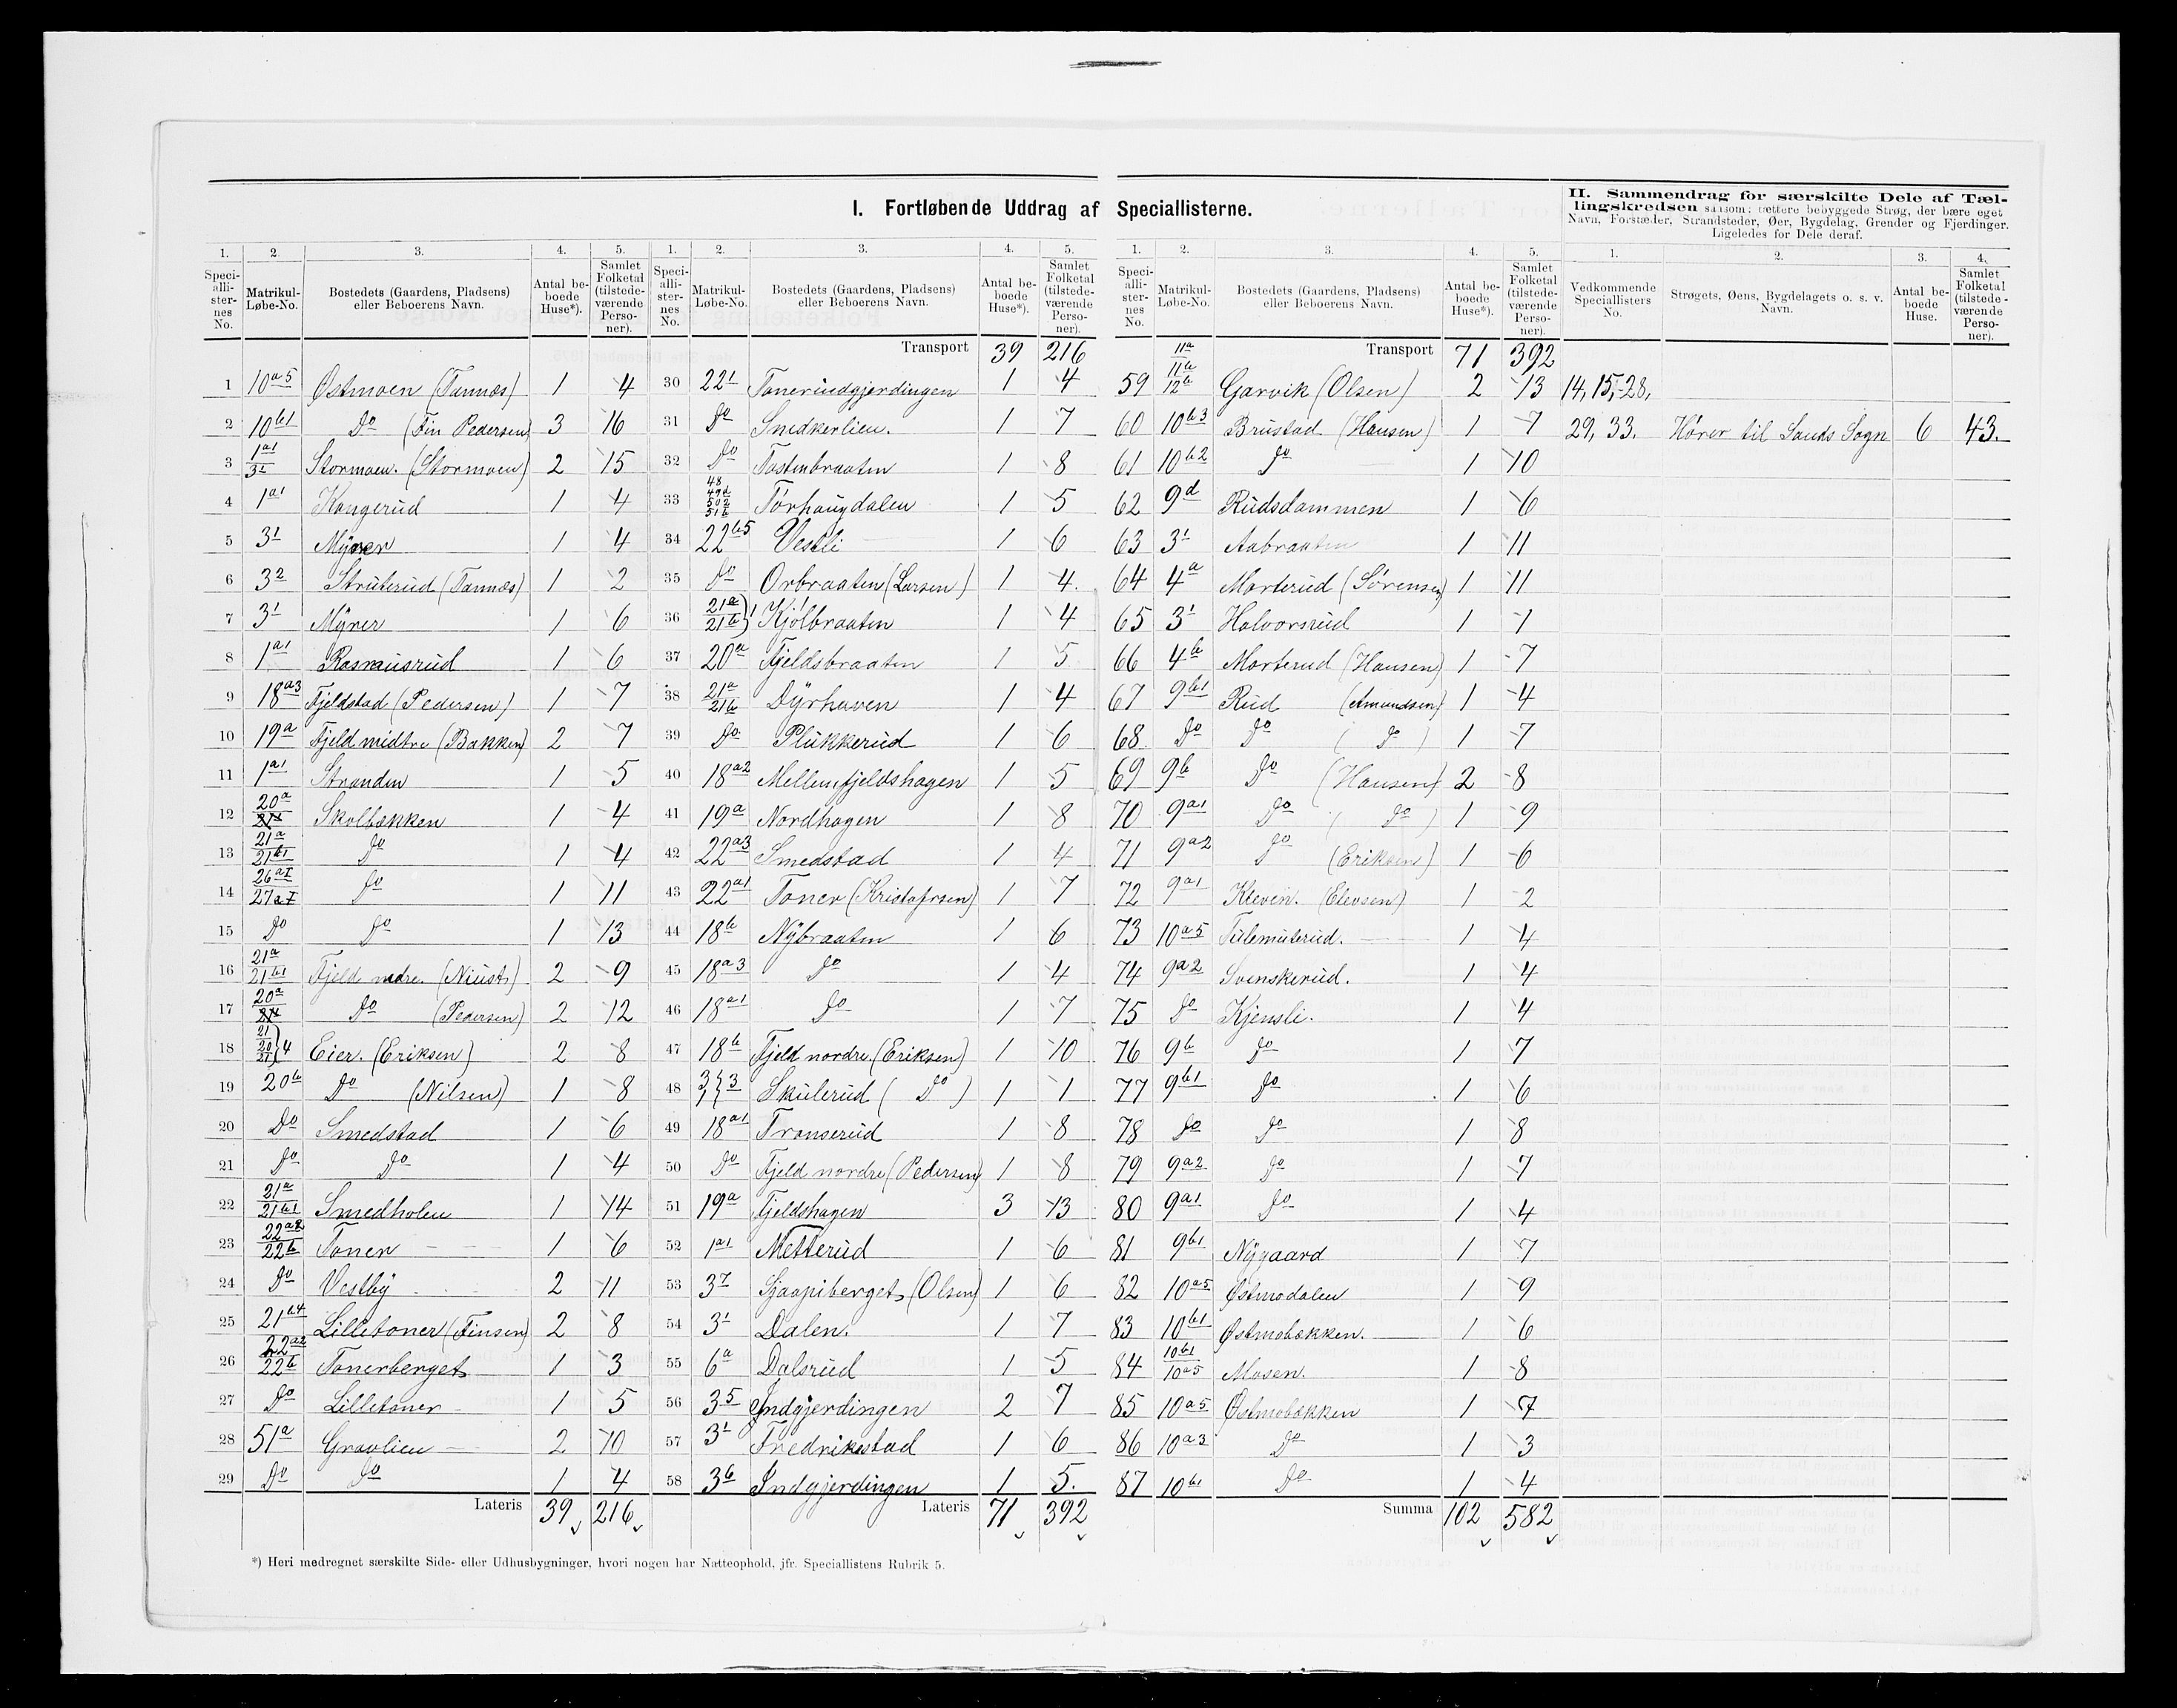 I. Fortløbende Uddrag af Speciallisterne.
II. Sammendrag for særskilte Dele af Tæl-
lingskredsen saasom: tættere bebyggede Strøg, der bære eget
Navn, Forstæder, Strandsteder, Øer, Bygdelag, Grender og Fjerdinger.
Ligeledes for Dele deraf.
1. 2. 3. 4. 5.
Speci-alli-ster-nes No. Matrikul-Løbe-No. Bostedets (Gaardens, Pladsens) eller Beboerens Navn. Antal be-boede Huse*). Samlet Folketal (tilstede-værende Perso-ner).
1 10a5 Østmoen (Tannæs) 1 4
2 10b1 Do (Fin Pedersen) 3 16
3 1a1 31 Stormoen. (Stormoen) 2 15
4 1a1 Kongerud 1 4
5 31 Myrer 1 4
6 32 Struterud (Tannæs) 1 2
7 31 Myrer 1 6
8 1a1 Rasmusrud 1 6
9 18a3 Fjeldstad (Pedersen) 1 7
10 19a Fjeld midtre (Bakken) 2 7
11 1a1 Stranden 1 5
12 20a Skolbækken 1 4
13 21a 21b1 Do 1 4
14 Do 1 11
15 Do Do 1 13
16 21a 21b1 Fjeld 2 9
17 20a Do (Pedersen) 2 12
18 Eier. (Eriksen) 2 8
19 20b Do (Nilsen) 1 8
20 Do Smedstad 1 6
21 Do Do 1 4
22 21a 21b1 Smedholen 1 14
23 22a2 22b Toner 1 6
24 Do Vestby 2 11
25 21b4 Lilletoner (Finsen) 2 8
26 22a2 22b Tonerberget 1 3
27 Do Lilletoner 1 5
28 51a Gravlien 2 10
29 Do Do 1 4
Lateris 39 216
1. 2. 3. 4. 5.
Speci-alli-ster-nes No. Matrikul-Løbe-No. Bostedets (Gaardens, Pladsens) eller Beboerens Navn. Antal be-boede Huse*). Samlet Folketal (tilstede-værende Perso-ner).
Transport 39 216
30 221 Tonerudgjerdingen 1 4
31 Do Snedkerlien. 1 7
32 Do Tostenbraaten 1 8
33 Tørhaugdalen 1 5
34 22b5 Vestli 1 6
35 Do Orbraaten (Larsen) 1 4
36 21a 21b Kjølbraaten 1 4
37 20a Fjeldsbraaten 1 5
38 21a 21b Dyrhaven 1 4
39 Do Plukkerud 1 6
40 18a2 Mellemfjeldshagen 1 5
41 19a Nordhagen 1 8
42 22a3 Smedstad 1 4
43 22a1 Toner (Kristofrsen) 1 7
44 18b Nybraaten 1 6
45 18a3 Do 1 4
46 18a1 Do 1 7
47 18b Fjeld nordre. (Eriksen) 1 10
48 Skulerud ( Do ) 1 1
49 18a1 Transerud 1 8
50 Do Fjeld nordre (Pedersen) 1 8
51 19a Fjeldshagen 3 13
52 1a1 Metterud 1 6
53 37 (Olsen) 1 6
54 31 Dalen. 1 7
55 6a Dalsrud 1 5
56 35 Indgjerdingen 2 7
57 31 Fredrikstad 1 6
58 36 Indgjerdingen 1 5.
Lateris 71 392
1. 2. 3. 4. 5.
Speci-alli-ster-nes No. Matrikul-Løbe-No. Bostedets (Gaardens, Pladsens) eller Beboerens Navn. Antal be-boede Huse*). Samlet Folketal (tilstede-værende Perso-ner).
Transport 71 392
59 11a 11b 12b Garvik (Olsen) 2 13
60 10b3 Brustad (Hansen) 1 7
61 10b2 Do 1 10
62 9d Rudsdammen 1 6
63 31 Aabraaten 1 11
64 4a Morterud (Sørensen) 1 11
65 31 Halvorsrud 1 1
66 4b Morterud (Hansen) 1 7
67 9b1 Rud (Amundsen) 1 4
68 Do Do ( Do ) 1 7
69 9b Do (Hansen) 2 8
70 9a1 Do ( Do ) 1 9
71 9a2 Do (Eriksen) 1 6
72 9a1 Kleven. (Elevsen) 1 2
73 10a5 Tulemuterud. 1 4
74 9a2 Svenskerud. 1 4
75 Do Kjensli. 1 4
76 9b Do 1 7
77 9b1 Do 1 6
78 Do Do 1 8
79 9a2 Do 1 7
80 9a1 Do 1 4
81 9b1 Nygaard 1 7
82 10a5 Østmodalen 1 9
83 10b1 Østmobækken. 1 6
84 10b1 10a5 Mosen. 1 8
85 10a5 Østmobækken 1 7
86 10a3 Do 1 3
87 10b1 Do 1 4
Summa 102 582
1. 2. 3. 4.
Vedkommende Speciallisters No. Strøgets, Øens, Bygdelagets o. s. v. Navn. Antal be-boede Huse. Samlet Folketal (tilstede-værende Perso-ner).
14, 15, 28,
29, 33. Hører til Sands Sogn 6 43.
*) Heri medregnet særskilte Side- eller Udhusbygninger, hvori nogen har Natteophold, jfr. Speciallistens Rubrik 5.